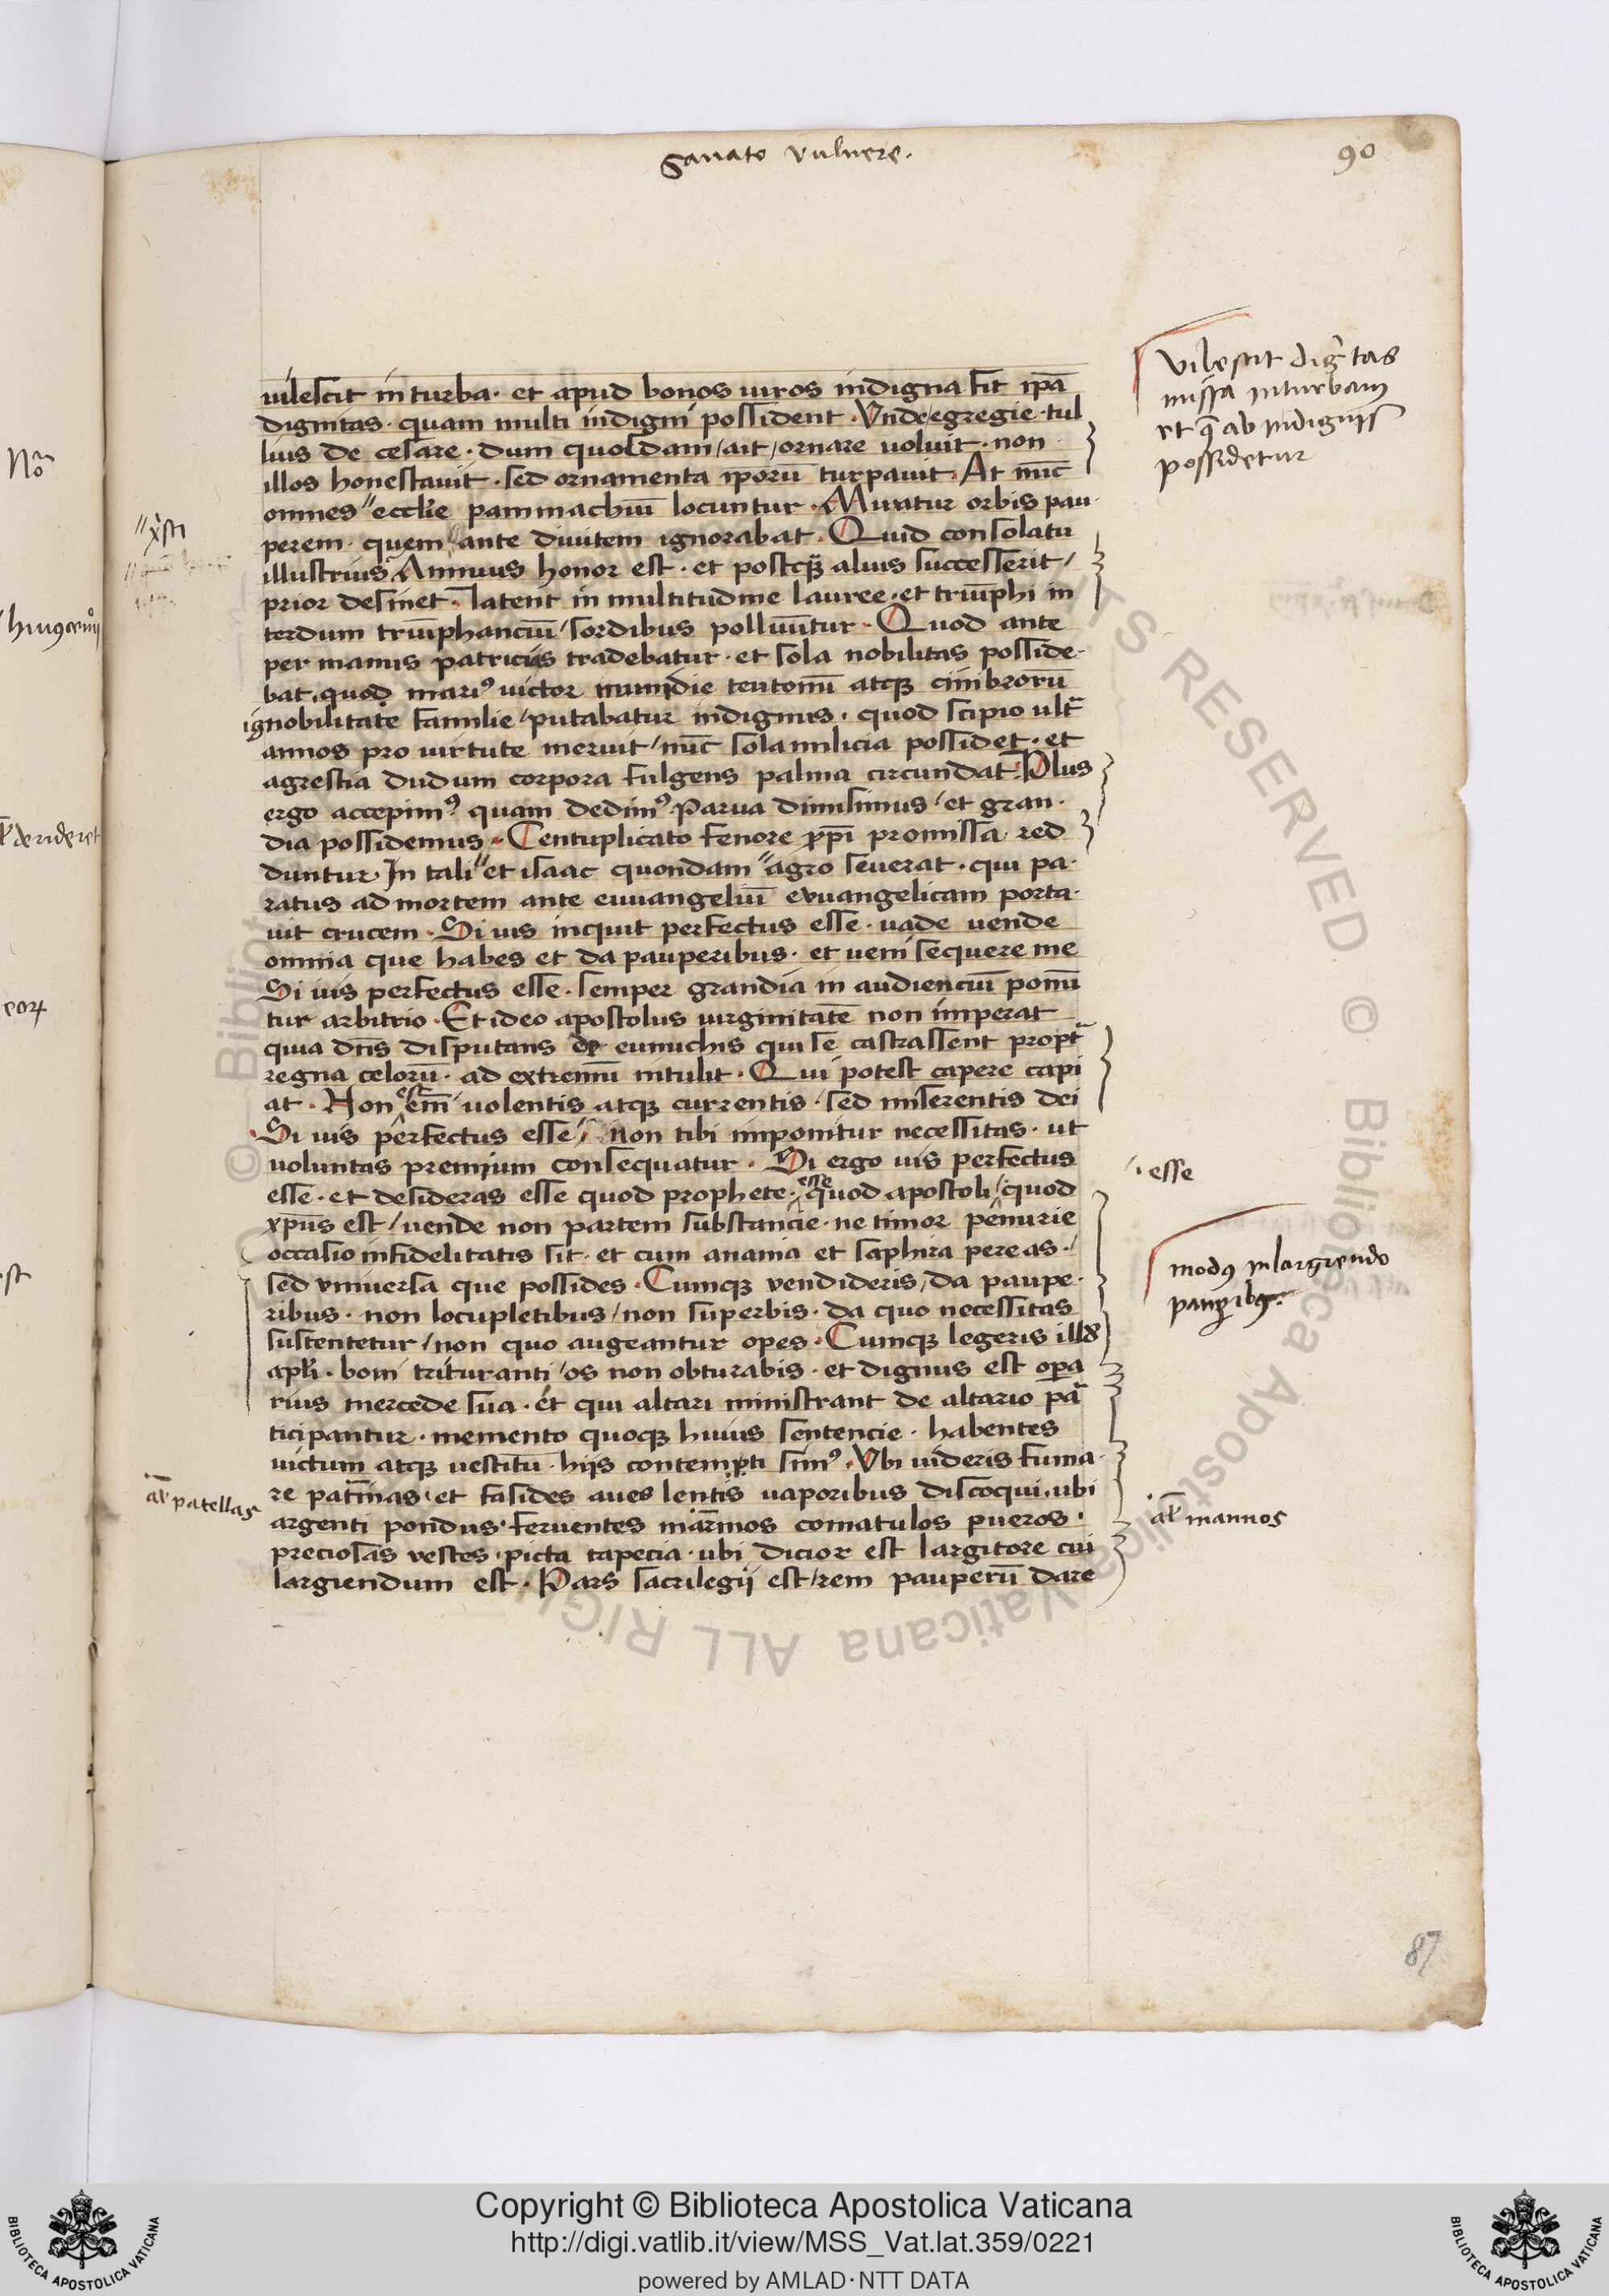 Sanato vulnere.
90
vilescit in turba · et apud bonos uiros indigna fit ip̄a
dignitas · quam multi indigni possident · Vnde egregie · tul
lius de cesare · dum quosdam / ait / ornare uoluit · non
illos honestauit · sed ornamenta ip̄orū turpauit · At nūc
omnes " eccl̄ie pammachiū locuntur · Miratur orbis pau-
perem · quem ante diuitem ignorabat · Quid consolatu
illustrius Annuus honor est · et postq̄ alius successerit /
prior desinet · latent in multitudine lauree · et triūphi in
terdum triūphanciū / sordibus polluūtur · Quod ante
per manus patricias tradebatur · et sola nobilitas posside-
bat · quod mariꝰ uictor numidie teutonū atqꝫ cimbrorū
ignobilitate familie / putabatur indignus · quod scipio ult̄
annos pro uirtute meruit / nūc sola milicia possidet · et
agrestia dudum corpora fulgens palma circundat · Plus
ergo accepimꝰ quam dedimꝰ · Parua dimisimus / et gran-
dia possidemus · Centuplicato fenore xp̄i promissa red
duntur · In tali " et isaac quondam " agro seuerat · qui pa-
ratus ad mortem ante euuangeliū euuangelicam porta-
uit crucem · Si uis inquit perfectus esse · uade uende
omnia que habes et da pauperibus · et ueni sequere me
Si uis perfectus esse · semper grandia in audienciū ponū
tur arbitrio · Et ideo apostolus uirginitatē non imperat
quia dn̄s disputans de eunuchis qui se castrassent propt̄
regna celorū · ad extremū intulit · Qui potest capere capi
at · Non em̄ uolentis atqꝫ currentis · sed miserentis dei
Si uis perfectus esse / non tibi imponitur necessitas · ut
uoluntas premium consequatur · Si ergo uis perfectus
esse · et desideras esse quod prophete · quod apostoli / quod
xp̄us est / uende non partem substancie · ne timor penurie
occasio infidelitatis sit · et cum anania et saphira pereas · /
sed vniuersa que possides · Cumqꝫ vendideris / da paupe-
ribus · non locupletibus / non superbis · da quo necessitas
sustentetur / non quo augeantur opes · Cumqꝫ legeris illd
apl̄i · boui trituranti / os non obturabis · et dignus est opa
rius mercede sua · et qui altari ministrant de altario pa
ticipantur · memento quoqꝫ huius sentencie · habentes
uictum atqꝫ uestitū · hijs contempti simꝰ · Vbi uideris fuma-
re pat̄inas · et fasides aues lentis uaporibus discoqui · ubi
argenti pondus · feruentes mān̄os comatulos pueros ·
preciosas vestes · picta tapecia · ubi dicior est largitore cui
largiendum est · Pars sacrilegij est / rem pauperū dare
vilescit dig̃tas
missa in turbam
et q̄ ab indignis
possidetur
" xp̄sti
· esse
modꝰ in largiendo
paup̄ibꝰ
al̄ patellas
al̄ mannos
No͂
derideret
eoꝝ
87
Copyright © Biblioteca Apostolica Vaticana
http://digi.vatlib.it/view/MSS_Vat.lat.359/0221
powered by AMLAD·NTT DATA
BIBLIOTECA APOSTOLICA VATICANA
BIBLIOTECA APOSTOLICA VATICANA